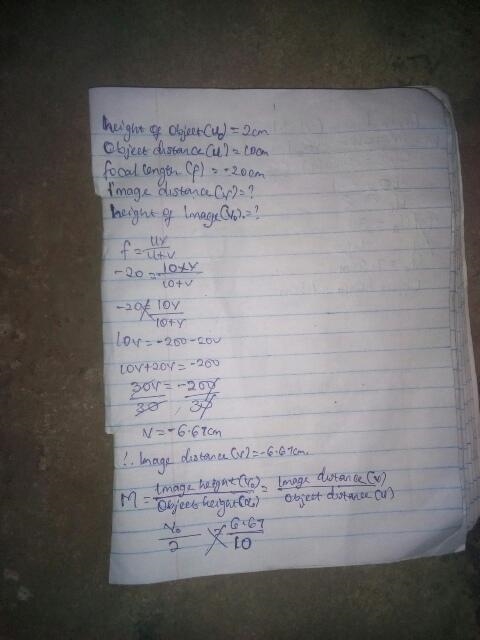 height of object(u₀) = 2cm
Object distance(u) = 10cm
focal length (f) = -20cm
Image distance(v) = ?
height of Image(v₀) = ?
f = uv/u+v
-20 = 10×v/10+v
-20 = 10v/10+v
10v = -200-20v
10v+20v = -200
30v/30 = -200/30
v = -6.67cm
∴ Image distance (v) = -6.67cm.
M = Image height(v₀)/Objects height(u₀) = Image distance(v)/Object distance(u)
v₀/2 = 6.67/10